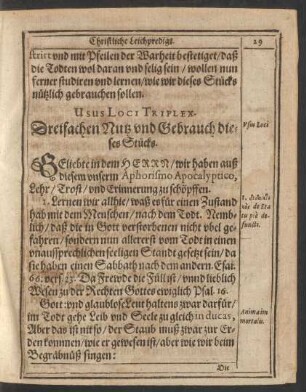 Christliche Leichpredigt. 29
strict vnd mit Pfeilen der Warheit bestetiget/ daß
die Todten wol daran vnd selig sein/ wollen nun
ferner studiren vnd lernen/ wie wir dieses Stücks
nützlich gebrauchen sollen.
USUS LOCI TRIPLEX.
Dreifachen Nutz vnd Gebrauch die-
ses Stücks.
Vsus Loci
GEliebte in dem HERRN/ wir haben auß
diesem vnserm Aphorismo Apocalyptico,
Lehr/ Trost/ vnd Erinnerung zu schöpffen.
1. Lernen wir allhie/ waß es für einen Zustand
hab mit dem Menschen/ nach dem Todt. Nemb-
lich/ daß die in Gott verstorbenen nicht vbel ge-
fahren/ sondern nun allererst vom Todt in einen
vnaussprechlichen seeligen Stand gesetzt sein/ da
sie haben einen Sabbath nach dem andern. Esai.
66. vers. 23. Da Frewde die Füll ist/ vnnd lieblich
Wesen zu der Rechten Gottes ewiglich Psal. 16.
Gott: vnd glaublose Leut haltens zwar darfür/
im Todt gehe Leib vnd Seele zu gleich in ducas,
Aber das ist nit so/ der Staub muß zwar zur Er-
den kommen/ wie er gewesen ist/ aber wie wir beym
Begräbnüß singen:
Die